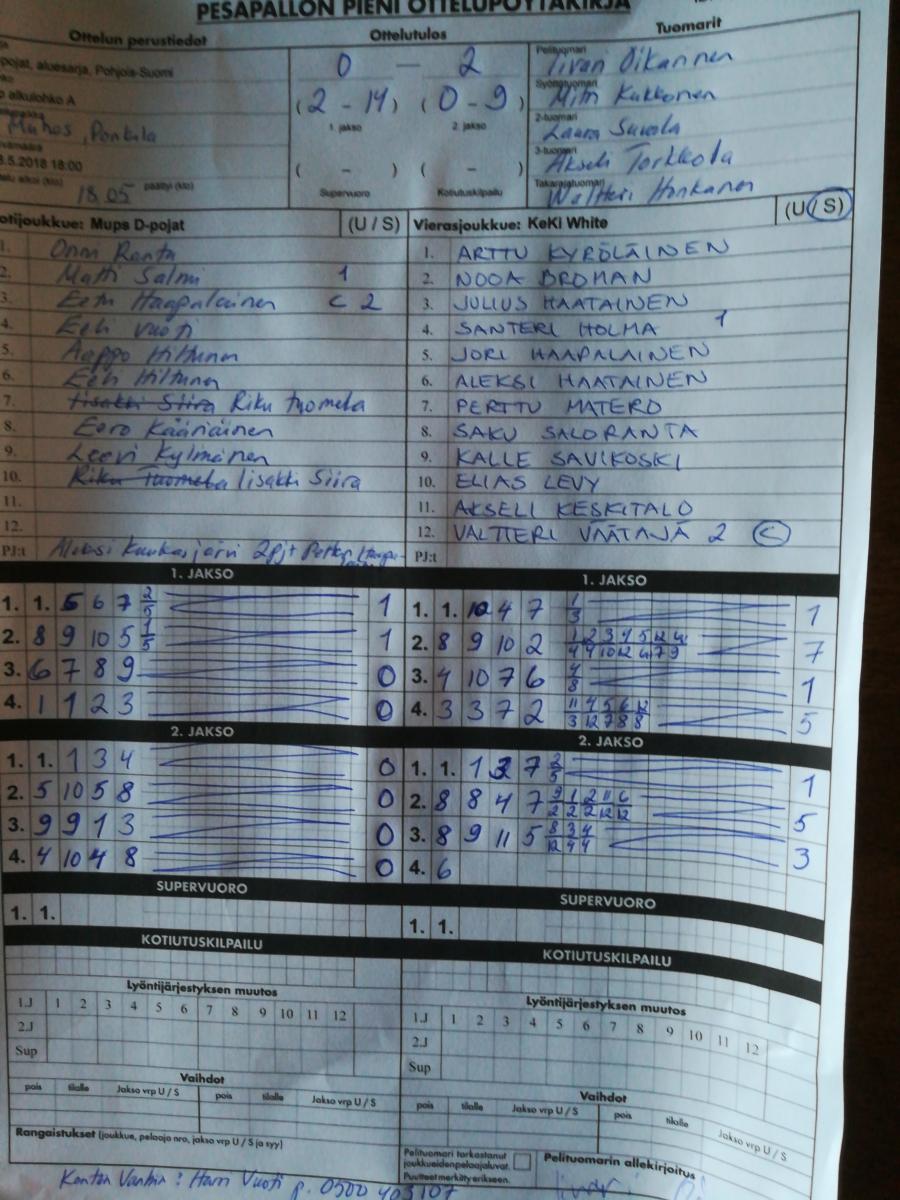 PESÄPALLON PIENI OTTELUPÖYTÄKIRJA
Ottelun perustiedot
pojat, aluesarja, Pohjois-Suomi
alkulohko A
Muhos, Ponkila
.5.2018 18:00
alkoi (klo) 18.05 päättyi (klo)
Ottelutulos
0 — 2
(2 - 14) (0 - 9)
1. jakso 2. jakso
( - ) ( - )
Supervuoro Kotiutuskilpailu
Tuomarit
Pelituomari Iivari Oikarinen
Syöttötuomari Kukkonen
2-tuomari Laura
3-tuomari Akseli Torkkola
Takarajatuomari Waltteri Honkanen
otijoukkue: Mups D-pojat (U / S)
1. Onni Ranta
2. Matti Salmi 1
3. Eetu Haapalainen C 2
4. Eeli Vuoti
5. Aappo Hiltunen
6. Eeli Hiltunen
7. Iisakki Siira Riku Tuomela
8. Eero Kääriäinen
9. Leevi Kylmänen
10. Riku Tuomela Iisakki Siira
11.
12.
PJ:t Aleksi Kuukasjärvi 2pj+
Vierasjoukkue: KeKi White (U / S)
1. ARTTU KYRÖLÄINEN
2. NOOA BROMAN
3. JULIUS HAATAINEN
4. SANTERI HOLMA 1
5. JORI HAAPALAINEN
6. ALEKSI HAATAINEN
7. PERTTU MATERO
8. SAKU SALORANTA
9. KALLE SAVIKOSKI
10. ELIAS LEVY
11. AKSELI KESKITALO
12. VALTTERI VÄÄTÄJÄ 2 C
PJ:t
1. JAKSO
1. 1. 5 6 7 2/5 1
2. 8 9 10 5 1/5 1
3. 6 7 8 9 0
4. 1 1 2 3 0
2. JAKSO
1. 1. 1 3 4 0
2. 5 10 5 8 0
3. 9 9 1 3 0
4. 4 10 4 8 0
SUPERVUORO
1. 1.
KOTIUTUSKILPAILU
Lyöntijärjestyksen muutos
1.J 1 2 3 4 5 6 7 8 9 10 11 12
2.J
Sup
Vaihdot
pois tilalle Jakso vrp U / S pois tilalle Jakso vrp U / S
Rangaistukset (joukkue, pelaaja nro, jakso vrp U / S ja syy)
1. JAKSO
1. 1. 10 4 7 1/3 1
2. 8 9 10 2 7
3. 4 10 7 6 4/8 1
4. 3 3 7 2 5
2. JAKSO
1. 1. 1 3 7 2/5 1
2. 8 8 4 7 5
3. 8 9 11 5 8/12 3/4 4/4 3
4. 6
SUPERVUORO
1. 1.
KOTIUTUSKILPAILU
Lyöntijärjestyksen muutos
1.J 1 2 3 4 5 6 7 8 9 10 11 12
2.J
Sup
Vaihdot
pois tilalle Jakso vrp U / S pois tilalle Jakso vrp U / S
Pelituomari tarkastanut
joukkueiden pelaajaluvat.
Puutteet merkitty erikseen.
Pelituomarin allekirjoitus
Kentän Vanhin: Harri Vuoti p. 0500 403107